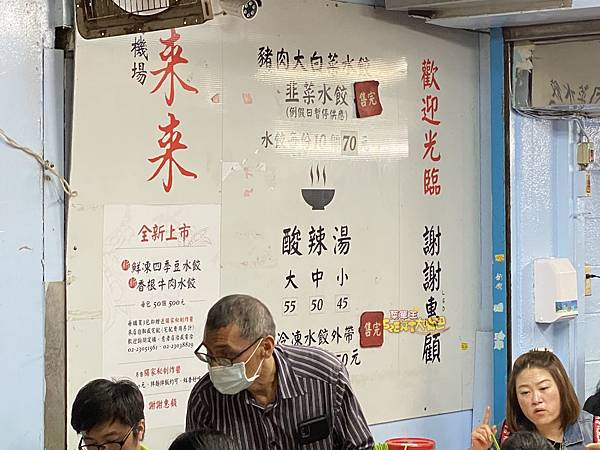 機場
來來
豬肉大白菜水餃
韭菜水餃
售完
(例假日暫停供應)
水餃每份10個70元
酸辣湯
大中小
55 50 45
冷凍水餃外帶
售完
50元
歡迎光臨
謝謝惠顧
全新上市
鮮凍四季豆水餃
香根牛肉水餃
每包50個500元
02-23051961、02-23038829
謝謝惠顧